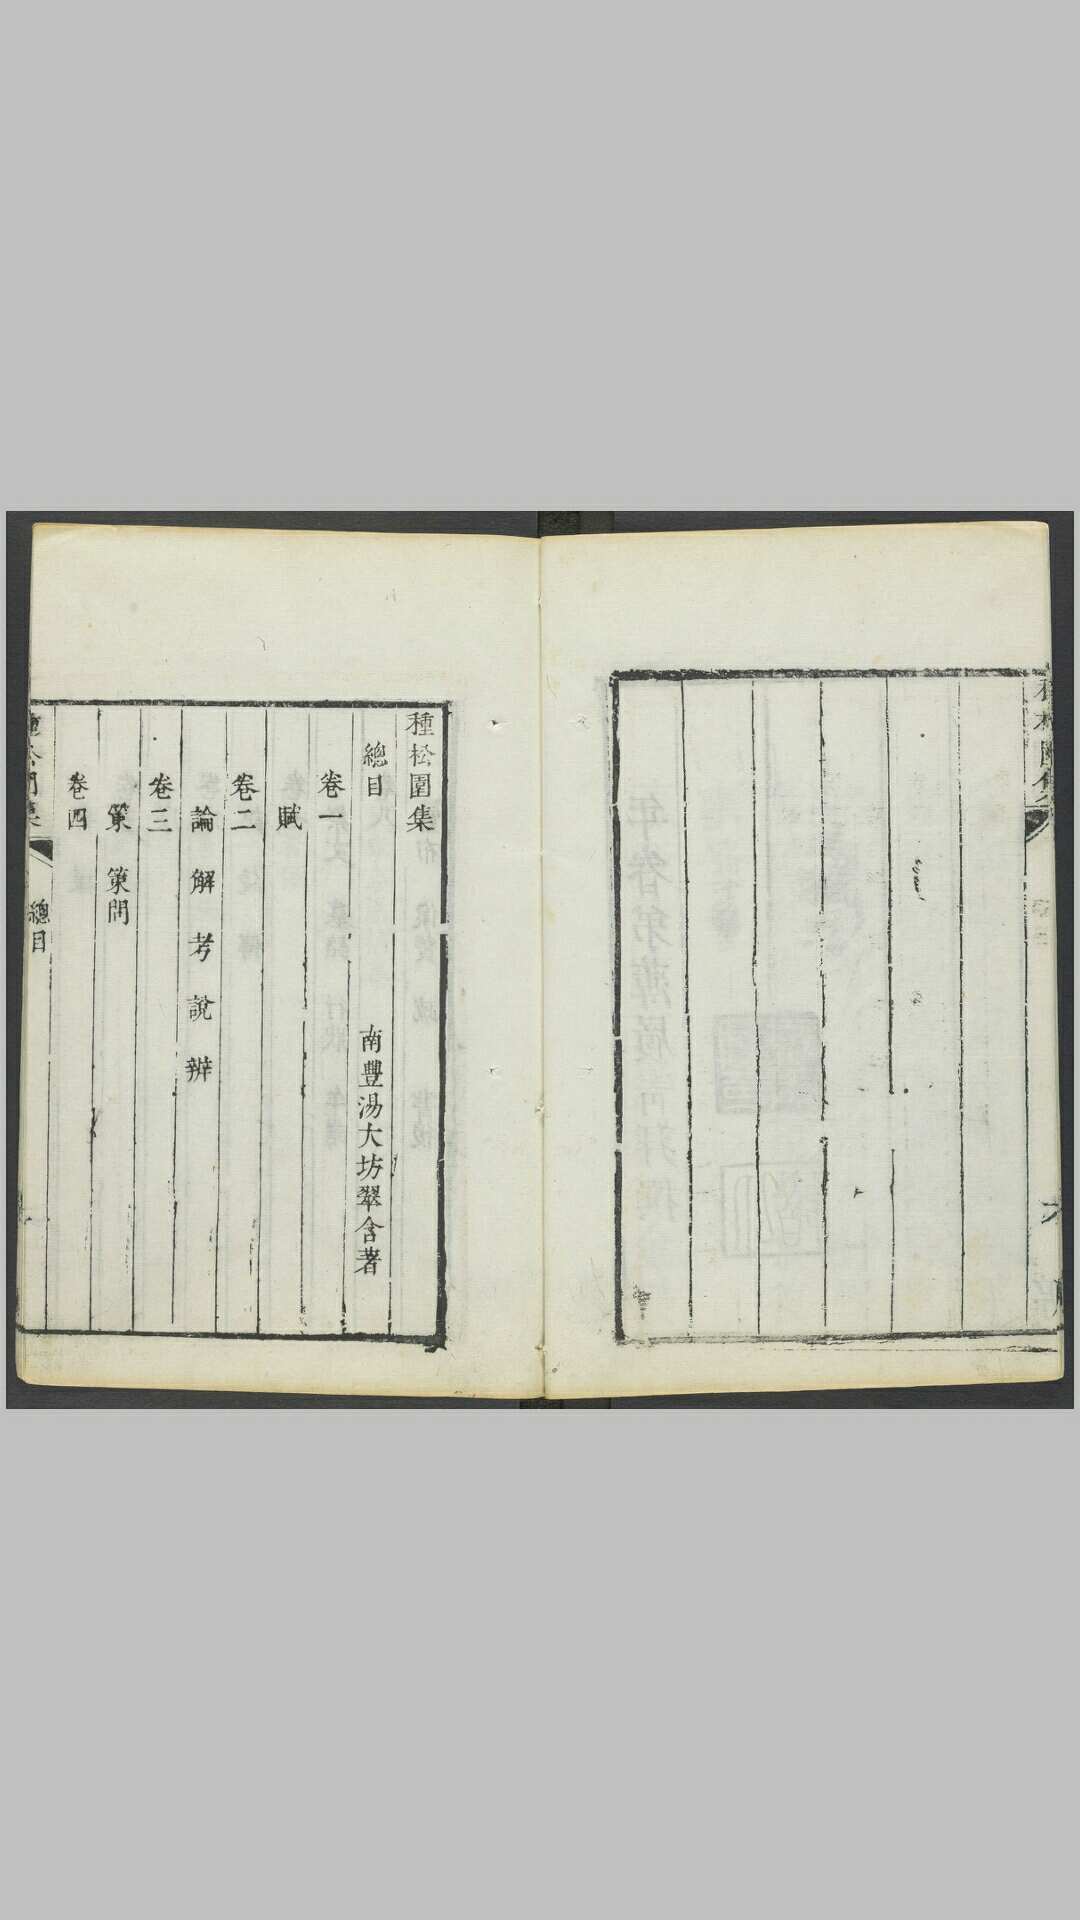 種松圍集
總目
南豐湯大坊翠含著
卷一
賦
卷二
論 解 考 說 辨
卷三
策 策問
卷四
總目